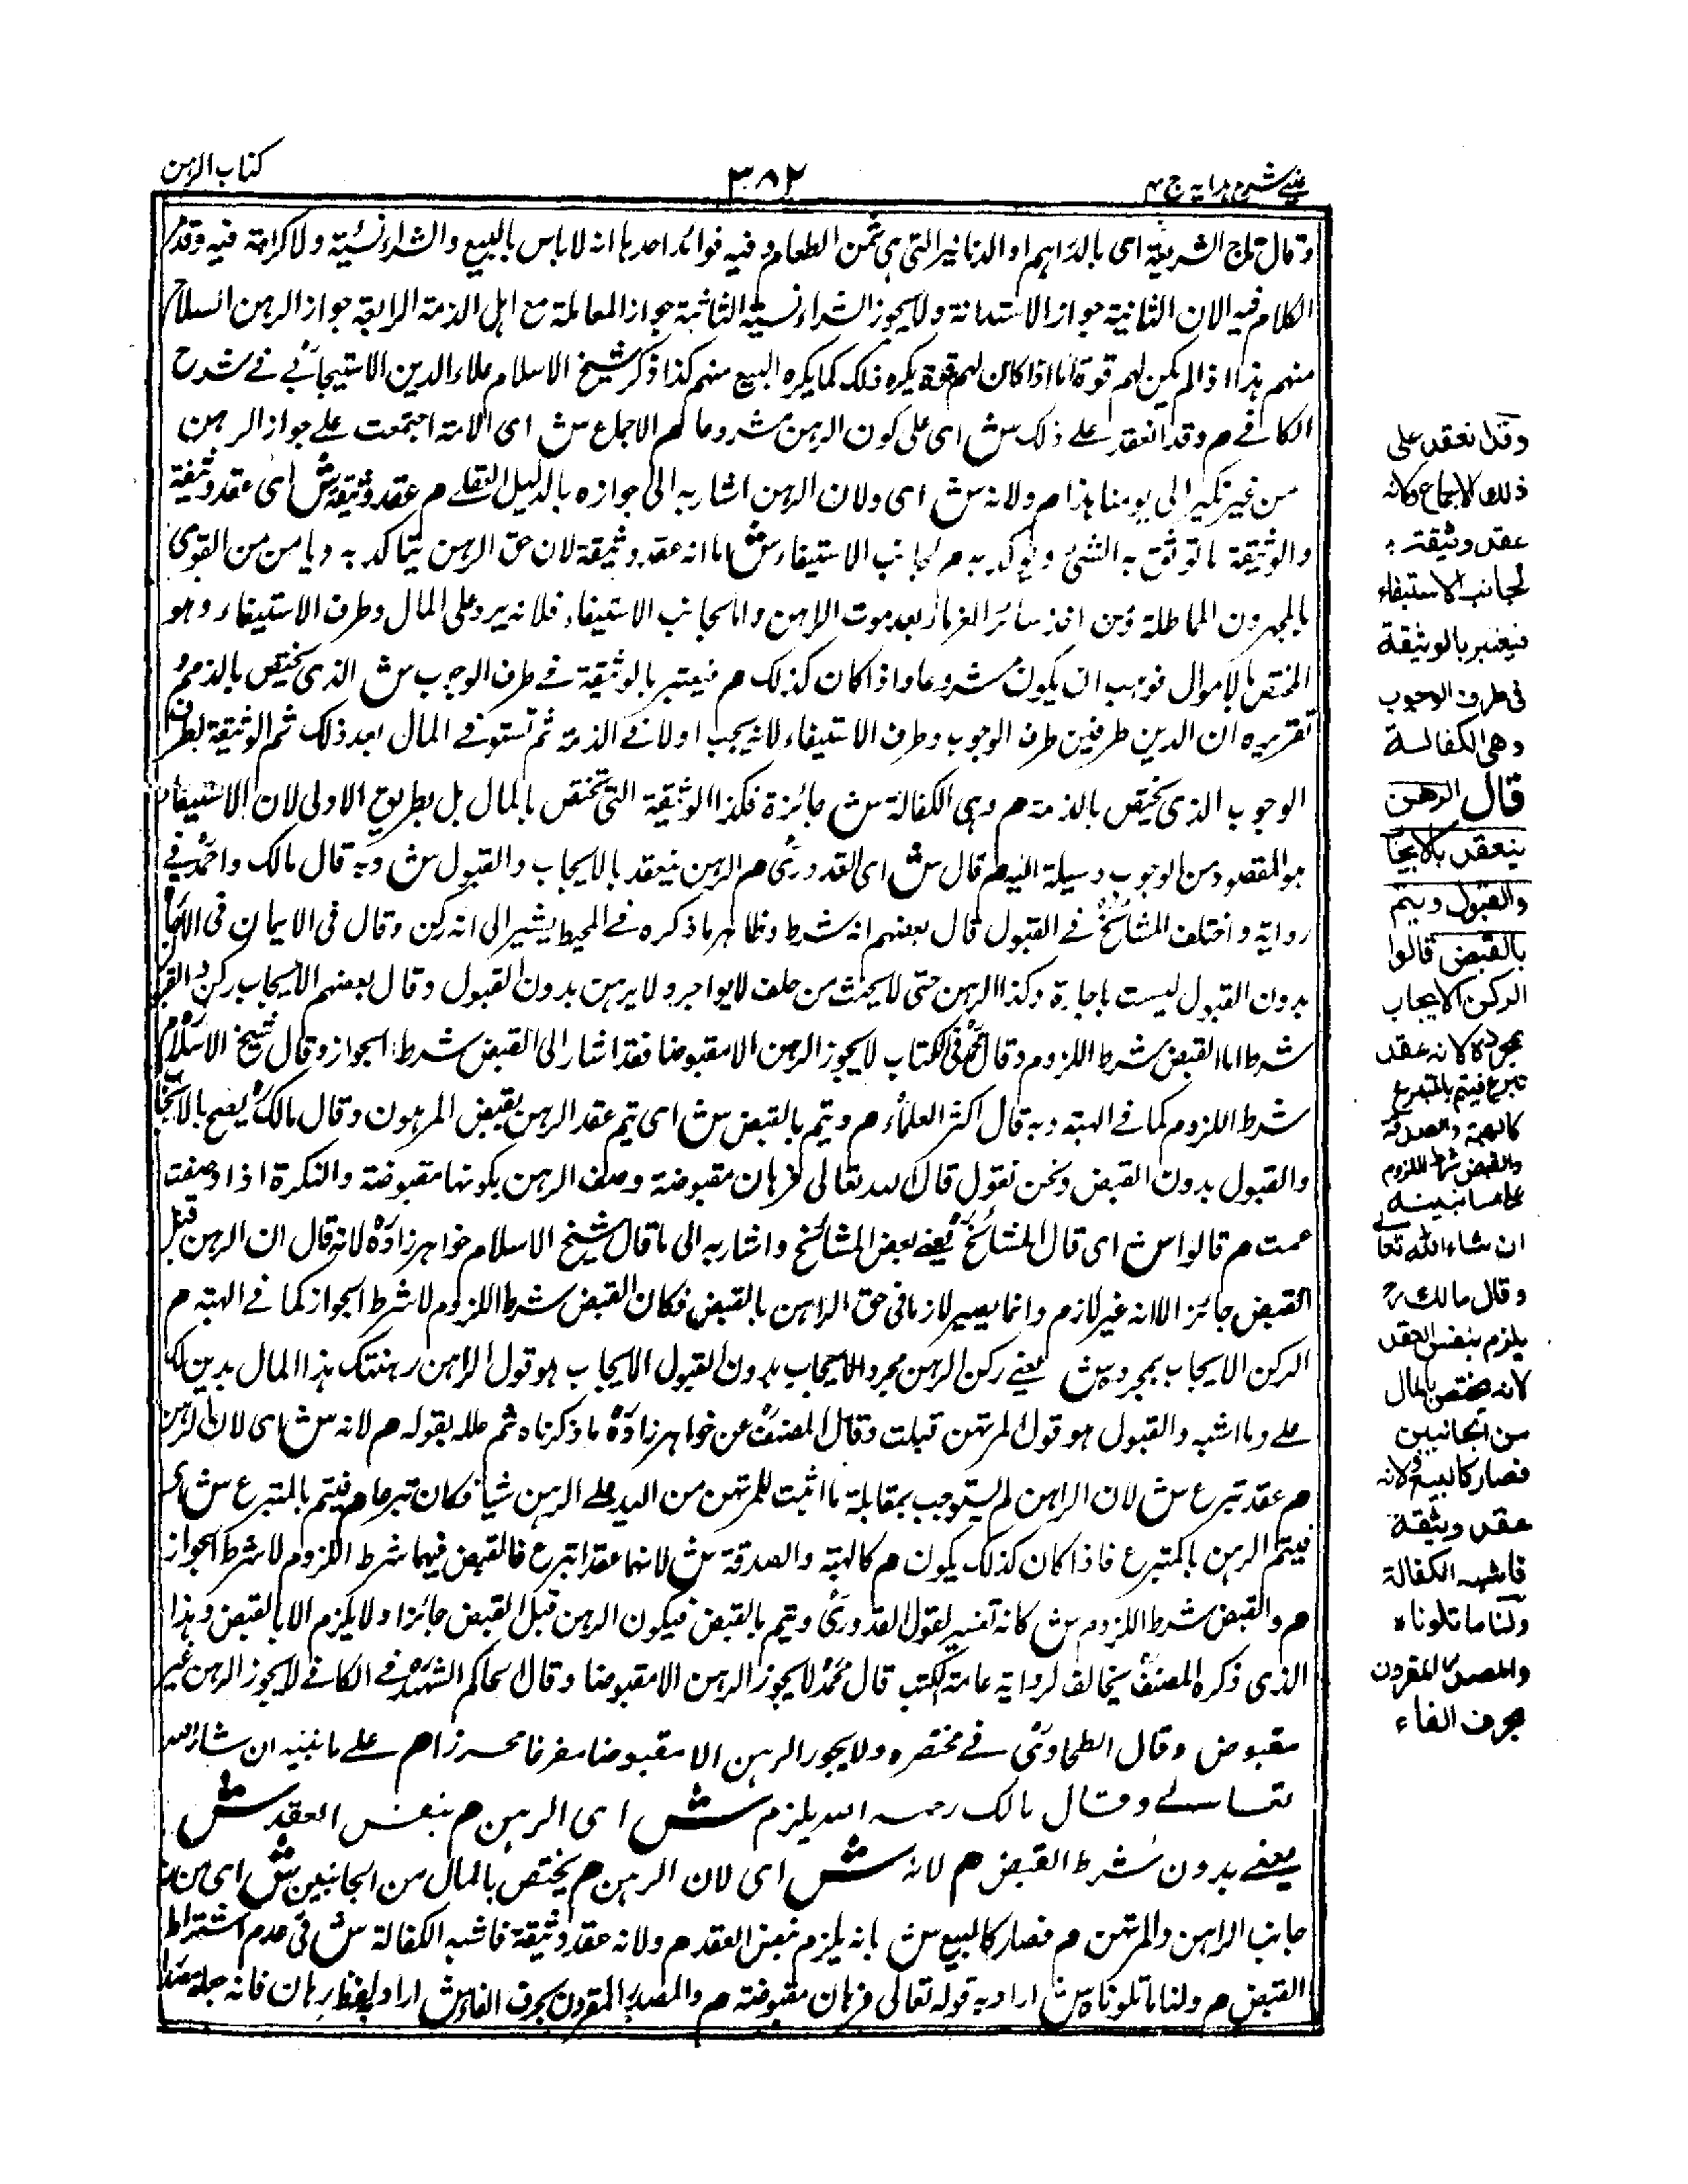 عيني شرح هداية ج ٤
٣٨٢
كتاب الرهن
وقال تاج الشريعة اى بالدراهم او الدنانير التى هى ثمن الطعام وفيه فوائد احدها انه لا باس بالبيع والشراء نسئية ولا كراهة فيه وقد مر
الكلام فيه الان الثانية جواز الاستدانة ولا يجوز الشراء نسئية الثالثة جواز المعاملة مع اهل الذمة الرابعة جواز الرهن السلاح
منهم هذا اذا لم يكن لهم قوة اما اذا كان لهم قوة يكره ذلك كما يكره البيع منهم كذا ذكر شيخ الاسلام علاء الدين الاسبيجابى فى شرح
الكافى م وقد انعقد على ذلك ش اى على كون الرهن مشروعا م الاجماع ش اى الامة اجتمعت على جواز الرهن
من غير نكير الى يومنا هذا م ولانه ش اى ولان الرهن اشار به الى جوازه بالدليل العقلى م عقد وثيقة ش اى عقد وثيقة
والوثيقة ما توثق به الشئ ويوكد به م لجانب الاستيفاء ش اما انه عقد وثيقة لان حق الرهن يتاكد به ويامن من القوى
بالمجهرون المماطلة ومن اخذ سائر الغرماء بعد موت الراهن واما لجانب الاستيفاء فلانه يرد على المال وطرف الاستيفاء وهو
المختص بالاموال فوجب ان يكون مشروعا واذا كان كذلك م فيعتبر بالوثيقة فى طرف الوجوب ش الذى يختص بالذمة و
تقريره ان الدين طرفين طرف الوجوب وطرف الاستيفاء لانه يجب اولا فى الذمة ثم تستوفى المال بعد ذلك ثم الوثيقة بطرف
الوجوب الذى يختص بالذمة م وهى الكفالة ش جائزة فكذا الوثيقة التى تختص بالمال بل بطريق الاولى لان الاستيفاء
هو المقصود من الوجوب وسيلة اليه م قال ش اى القدورى م الرهن ينعقد بالايجاب والقبول ش وبه قال مالك واحمد فى
رواية واختلف المشائخ فى القبول قال بعضهم انه شرط وظاهر ما ذكره فى المحيط يشير الى انه ركن وقال فى الايمان فى الاجارة
بدون القبول ليست باجارة وكذا الرهن حتى لا يحنث من حلف لا يواجر ولا يرهن بدون القبول وقال بعضهم الايجاب ركن والقبول
شرط اما القبض شرط اللزوم وقال محمد فى الكتاب لا يجوز الرهن الا مقبوضا فقد اشار الى القبض شرط الجواز وقال شيخ الاسلام
شرط اللزوم كما فى الهبة وبه قال اكثر العلماء م ويتم بالقبض ش اى يتم عقد الرهن بقبض المرهون وقال مالك يصح بالايجاب
والقبول بدون القبض ونحن نقول قال الله تعالى فرهان مقبوضة وصف الرهن بكونها مقبوضة والنكرة اذا وصفت
عمت م قالوا ش اى قال المشائخ يعنى بعض المشائخ واشار به الى ما قال شيخ الاسلام خواهر زاده لانه قال ان الرهن قبل
القبض جائز الا انه غير لازم وانما يصير لازما فى حق الراهن بالقبض فكان القبض شرط اللزوم لا شرط الجواز كما فى الهبة م
الركن الايجاب بمجرده ش يعنى ركن الرهن مجرد الايجاب بدون القبول الايجاب هو قول الراهن رهنتك هذا المال بدين لك
على وما اشبه والقبول هو قول المرتهن قبلت وقال المصنف عن خواهر زاده ما ذكرناه ثم علله بقوله م لانه ش اى لان الرهن
م عقد تبرع ش لان الراهن لم يستوجب بمقابلة ما اثبت للمرتهن من اليد على الرهن شيا فكان تبرعا م فيتم بالمتبرع ش اى
فيتم الرهن بالمتبرع فاذا كان كذلك يكون م كالهبة والصدقة ش لانهما عقدا تبرع فالقبض فيهما شرط اللزوم لا شرط الجواز
م والقبض شرط اللزوم ش كانه تفسير لقول القدورى ويتم بالقبض فيكون الرهن قبل القبض جائزا ولا يلزم الا بالقبض وهذا
الذى ذكره المصنف يخالف لرواية عامة الكتب قال محمد لا يجوز الرهن الا مقبوضا وقال الحاكم الشهيد فى الكافى لا يجوز الرهن غير
مقبوض وقال الطحاوى فى مختصره ولا يجوز الرهن الا مقبوضا مفرغا محرزا م على ما نبينه ان شاء الله
تعالى وقال مالك رحمه الله يلزم ش اى الرهن م بنفس العقد ش
يعنى بدون شرط القبض م لانه ش اى لان الرهن م يختص بالمال من الجانبين ش اى من
جانب الراهن والمرتهن م فصار كالبيع ش بانه يلزم بنفس العقد م ولانه عقد وثيقة فاشبه الكفالة ش فى عدم اشتراط
القبض م ولنا ما تلوناه ش اراد به قوله تعالى فرهان مقبوضة م والمصدر المقرون بحرف الفاء ش اراد به لفظ رهان فانه جملة
وقد انعقد على
ذلك الاجماع ولانه
عقد وثيقة
لجانب الاستيفاء
فيعتبر بالوثيقة
فى طرف الوجوب
وهى الكفالة
قال الرهن
ينعقد بالايجاب
والقبول ويتم
بالقبض قالوا
الركن الايجاب
بمجرده لانه عقد
تبرع فيتم بالمتبرع
كالهبة والصدقة
والقبض شرط اللزوم
على ما نبينه
ان شاء الله تعالى
وقال مالك رح
يلزم بنفس العقد
لانه يختص بالمال
من الجانبين
فصار كالبيع ولانه
عقد وثيقة
فاشبه الكفالة
ولنا ما تلوناه
والمصدر المقرون
بحرف الفاء